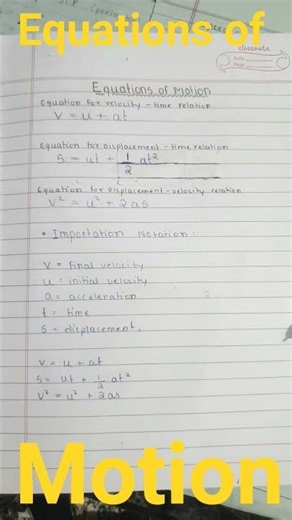 Equations of
classmate
Date
Page
Equations of Motion
Equation for velocity - time relation
V = u + at
Equation for displacement - time relation
S = ut + 1/2 at²
Equation for Displacement - velocity relation
V² = u² + 2as
• Importation Notation:
V = Final velocity
u = initial velocity
a = acceleration
t = time
S = displacement.
V = u + at
S = ut + 1/2 at²
V² = u² + 2as
Motion